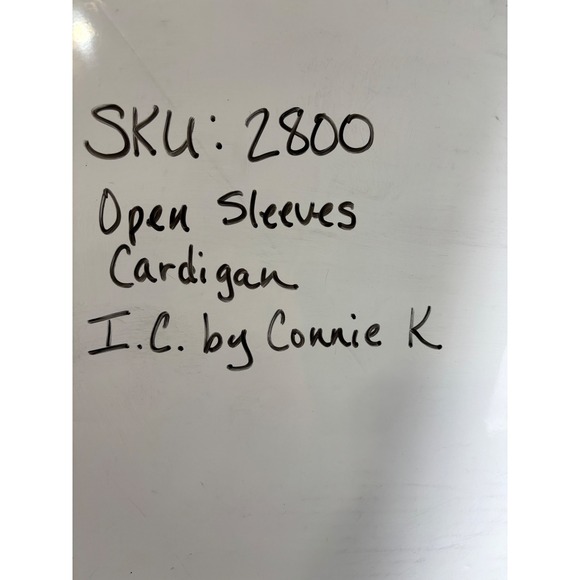 SKU: 2800
Open Sleeves
Cardigan
I.C. by Connie K